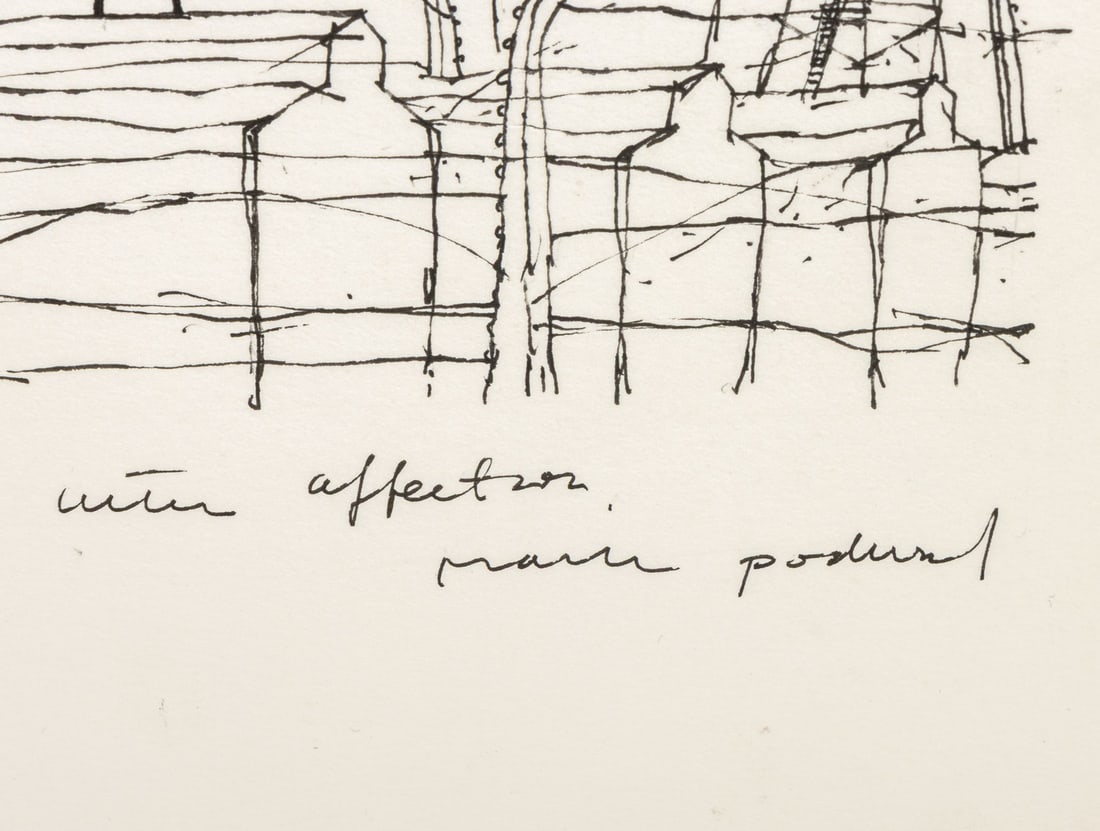 with affection
mark podwal